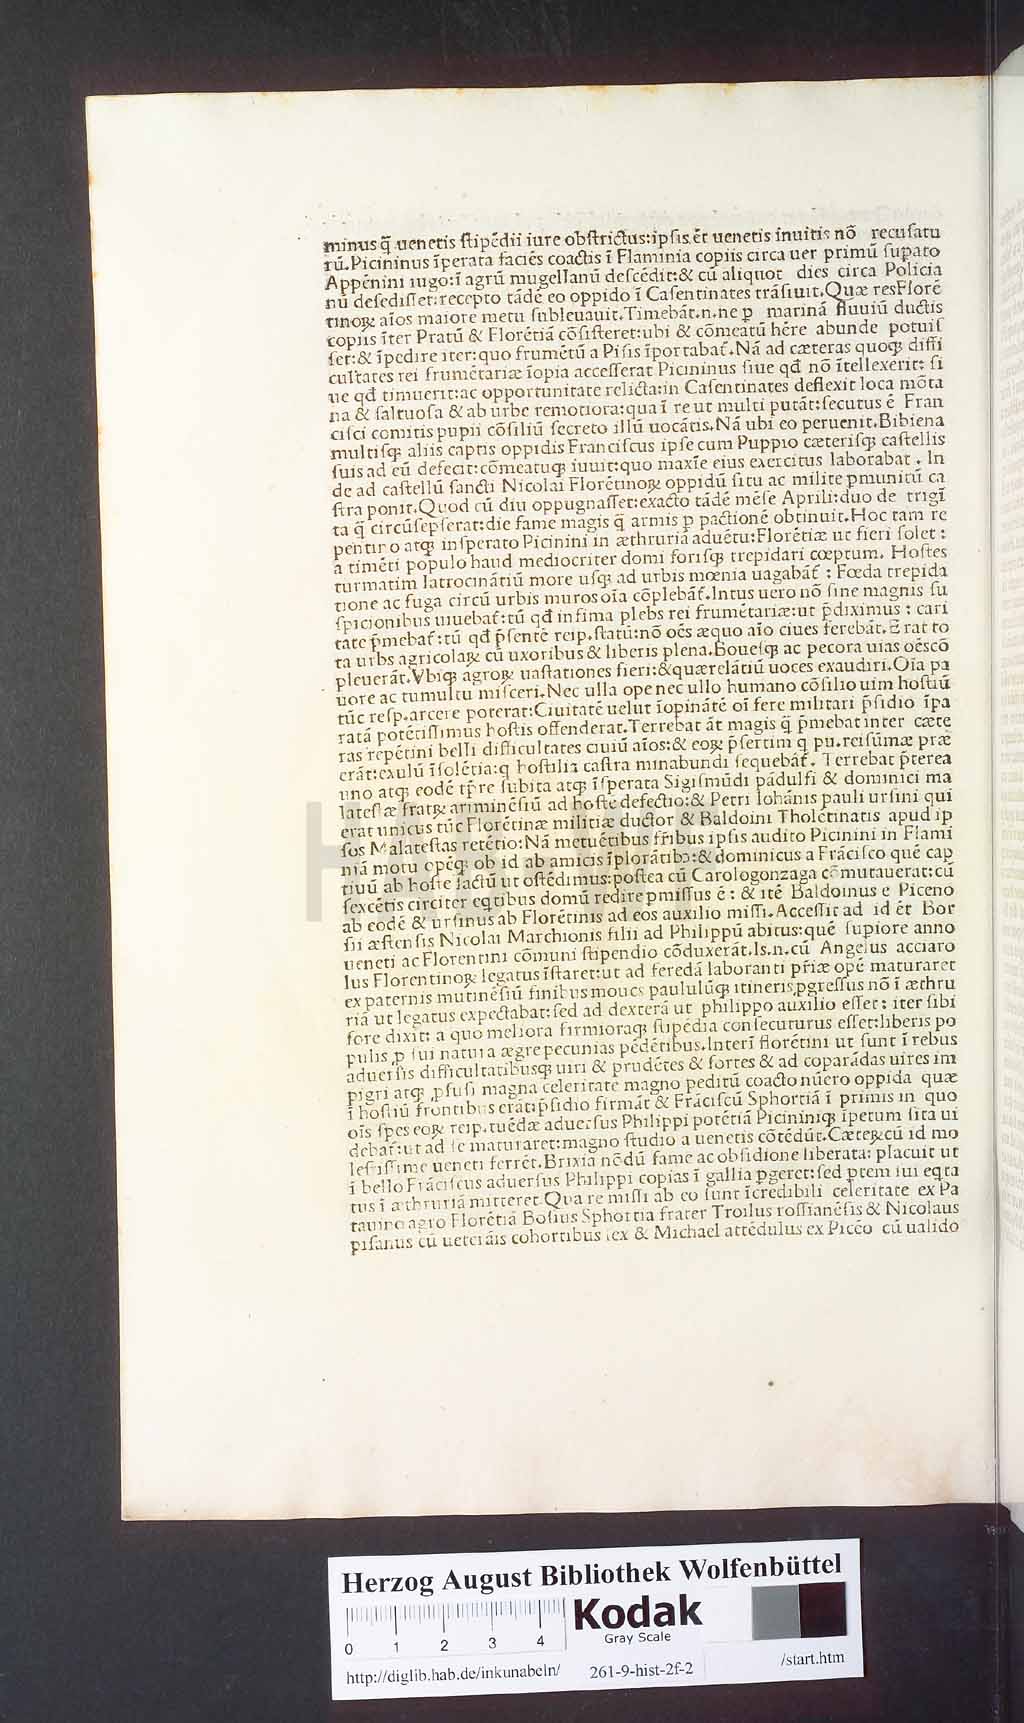 minus q̄ uenetis ſtipēdii iure obſtrictus:ipſis ēt uenetis inuitis nō recuſatu
rū.Picininus īperata faciēs coactis ī Flaminia copiis circa uer primū ſupato
Appēnini iugo:ī agrū mugellanū deſcēdit:& cū aliquot dies circa Policia
nū deſediſſet:recepto tādē eo oppido ī Caſentinates trāſiuit.Quæ resFlorē
tinoꝝ aīos maiore metu ſubleuauit.Timebāt.n.ne ꝑ marinā fluuiū ductis
copiis īter Pratū & Florētiā cōſiſteret:ubi & cōmeatū hēre abunde potuiſ
ſet:& īpedire iter:quo frumētū a Piſis īportabat̄.Nā ad cæteras quoqꝫ diffi
cultates rei frumētariæ īopia acceſſerat Picininus ſiue qđ nō ītellexerit: ſi
ue qđ timuerit:ac opportunitate relicta:in Caſentinates deflexit loca mōta
na & ſaltuoſa & ab urbe remotiora:qua ī re ut multi putāt:ſecutus ē Fran
ciſci comitis pupii cōſiliū ſecreto illū uocātis.Nā ubi eo peruenit.Bibiena
multiſqꝫ aliis captis oppidis Franciſcus ipſe cum Puppio cæteriſqꝫ caſtellis
ſuis ad eū defecit:cōmeatuqꝫ iuuit:quo maxīe eius exercitus laborabat . In
de ad caſtellū ſancti Nicolai Florētinoꝝ oppidū ſitu ac milite pmunitū ca
ſtra ponit.Quod cū diu oppugnaſſet:exacto tādē mēſe Aprili:duo de trigī
ta q̄ circūſepſerat:die fame magis q̄ armis ꝑ pactionē obtinuit.Hoc tam re
pentino atqꝫ inſperato Picinini in æthruriā aduētu:Florētiæ ut fieri ſolet :
a timēti populo haud mediocriter domi foriſqꝫ trepidari cœptum. Hoſtes
turmatim latrocinātiū more uſqꝫ ad urbis mœnia uagabāt̄ : Fœda trepida
tione ac fuga circū urbis muros oīa cōplebāt̄.Intus uero nō ſine magnis ſu
ſpicionibus uiuebat̄:tū qđ infima plebs rei frumētariæ:ut p̄diximus : cari
tate p̄mebat̄:tū qđ p̄ſentē reip.ſtatū:nō oēs æquo aīo ciues ferebāt.Erat to
ta urbs agricolaꝝ cū uxoribus & liberis plena.Boueſqꝫ ac pecora uias oēscō
pleuerāt.Vbiqꝫ agroꝝ uaſtationes fieri:&quærelātiū uoces exaudiri.Oīa pa
uore ac tumultu miſceri.Nec ulla ope nec ullo humano cōſilio uim hoſtiū
tūc reſp.arcere poterat:Ciuitatē uelut īopinātē oī fere militari p̄ſidio īpa
ratā potētiſſimus hoſtis offenderat.Terrebat āt magis q̄ p̄mebat inter cæte
ras repētini belli difficultates ciuiū aīos:& eoꝝ p̄ſertim q pu.rei ſūmæ præ
erāt:exulū īſolētia:q hoſtilia caſtra minabundi ſequebāt̄. Terrebat p̄terea
uno atqꝫ eodē tp̄re ſubita atqꝫ īſperata Sigiſmūdi pādulfi & dominici ma
lateſtæ fratꝝ ariminēſiū ad hoſtē defectio:& Petri Iohānis pauli urſini qui
erat unicus tūc Florētinæ militiæ ductor & Baldoini Tholētinatis apud ip
ſos Malateſtas retētio:Nā metuētibus fr̄ibus ipſis audito Picinini in Flami
niā motu opēqꝫ ob id ab amicis īplorātibꝰ:& dominicus a Frāciſco quē cap
tiuū ab hoſte factū ut oſtēdimus:poſtea cū Carologonzaga cōmutauerat:cū
ſexcētis circiter eqtibus domū redire pmiſſus ē : & itē Baldoinus e Piceno
ab eodē & urſinus ab Florētinis ad eos auxilio miſſi.Acceſſit ad id ēt Bor
ſii æſtenſis Nicolai Marchionis filii ad Philippū abitus:quē ſupiore anno
ueneti ac Florentini cōmuni ſtipendio cōduxerāt.Is.n.cū Angelus acciaro
lus Florentinoꝝ legatus īſtaret:ut ad feredā laboranti pr̄iæ opē maturaret
ex paternis mutinēſiū finibus moues paululūqꝫ itineris ꝓgreſſus nō ī æthru
riā ut legatus expectabat:ſed ad dexterā ut philippo auxilio eſſet: iter ſibi
fore dixit: a quo meliora firmioraqꝫ ſtipēdia conſecuturus eſſet:liberis po
pulis ꝓ ſui natura ægre pecunias pēdētibus.Interī florētini ut ſunt ī rebus
aduerſis difficultatibuſqꝫ uiri & prudētes & fortes & ad coparādas uires im
pigri atqꝫ ꝓfuſi magna celeritate magno peditū coacto nūero oppida quæ
ī hoſtiū frontibus erāt:p̄ſidio firmāt & Frāciſcū Sphortiā ī primis in quo
oīs ſpes eoꝝ reip.tuēdæ aduerſus Philippi potētiā Picininiqꝫ īpetum ſita ui
debat̄:ut ad ſe maturaret:magno ſtudio a uenetis cōtēdūt.Cæteꝝ cū id mo
leſtiſſime ueneti ferrēt.Brixiā nōdū fame ac obſidione liberata: placuit ut
ī bello Frāciſcus aduerſus Philippi copias ī gallia pgeret:ſed ptem ſui eqta
tus ī æthruriā mitteret.Qua re miſſi ab eo ſunt īcredibili celeritate ex Pa
tauino agro Florētiā Boſius Sphortia frater Troilus roſſianēſis & Nicolaus
piſanus cū ueterāis cohortibus ſex & Michael attēdulus ex Picēo cū ualido
Herzog August Bibliothek Wolfenbüttel
0 1 2 3 4
Kodak
Gray Scale
http://diglib.hab.de/inkunabeln/ 261-9-hist-2f-2 /start.htm